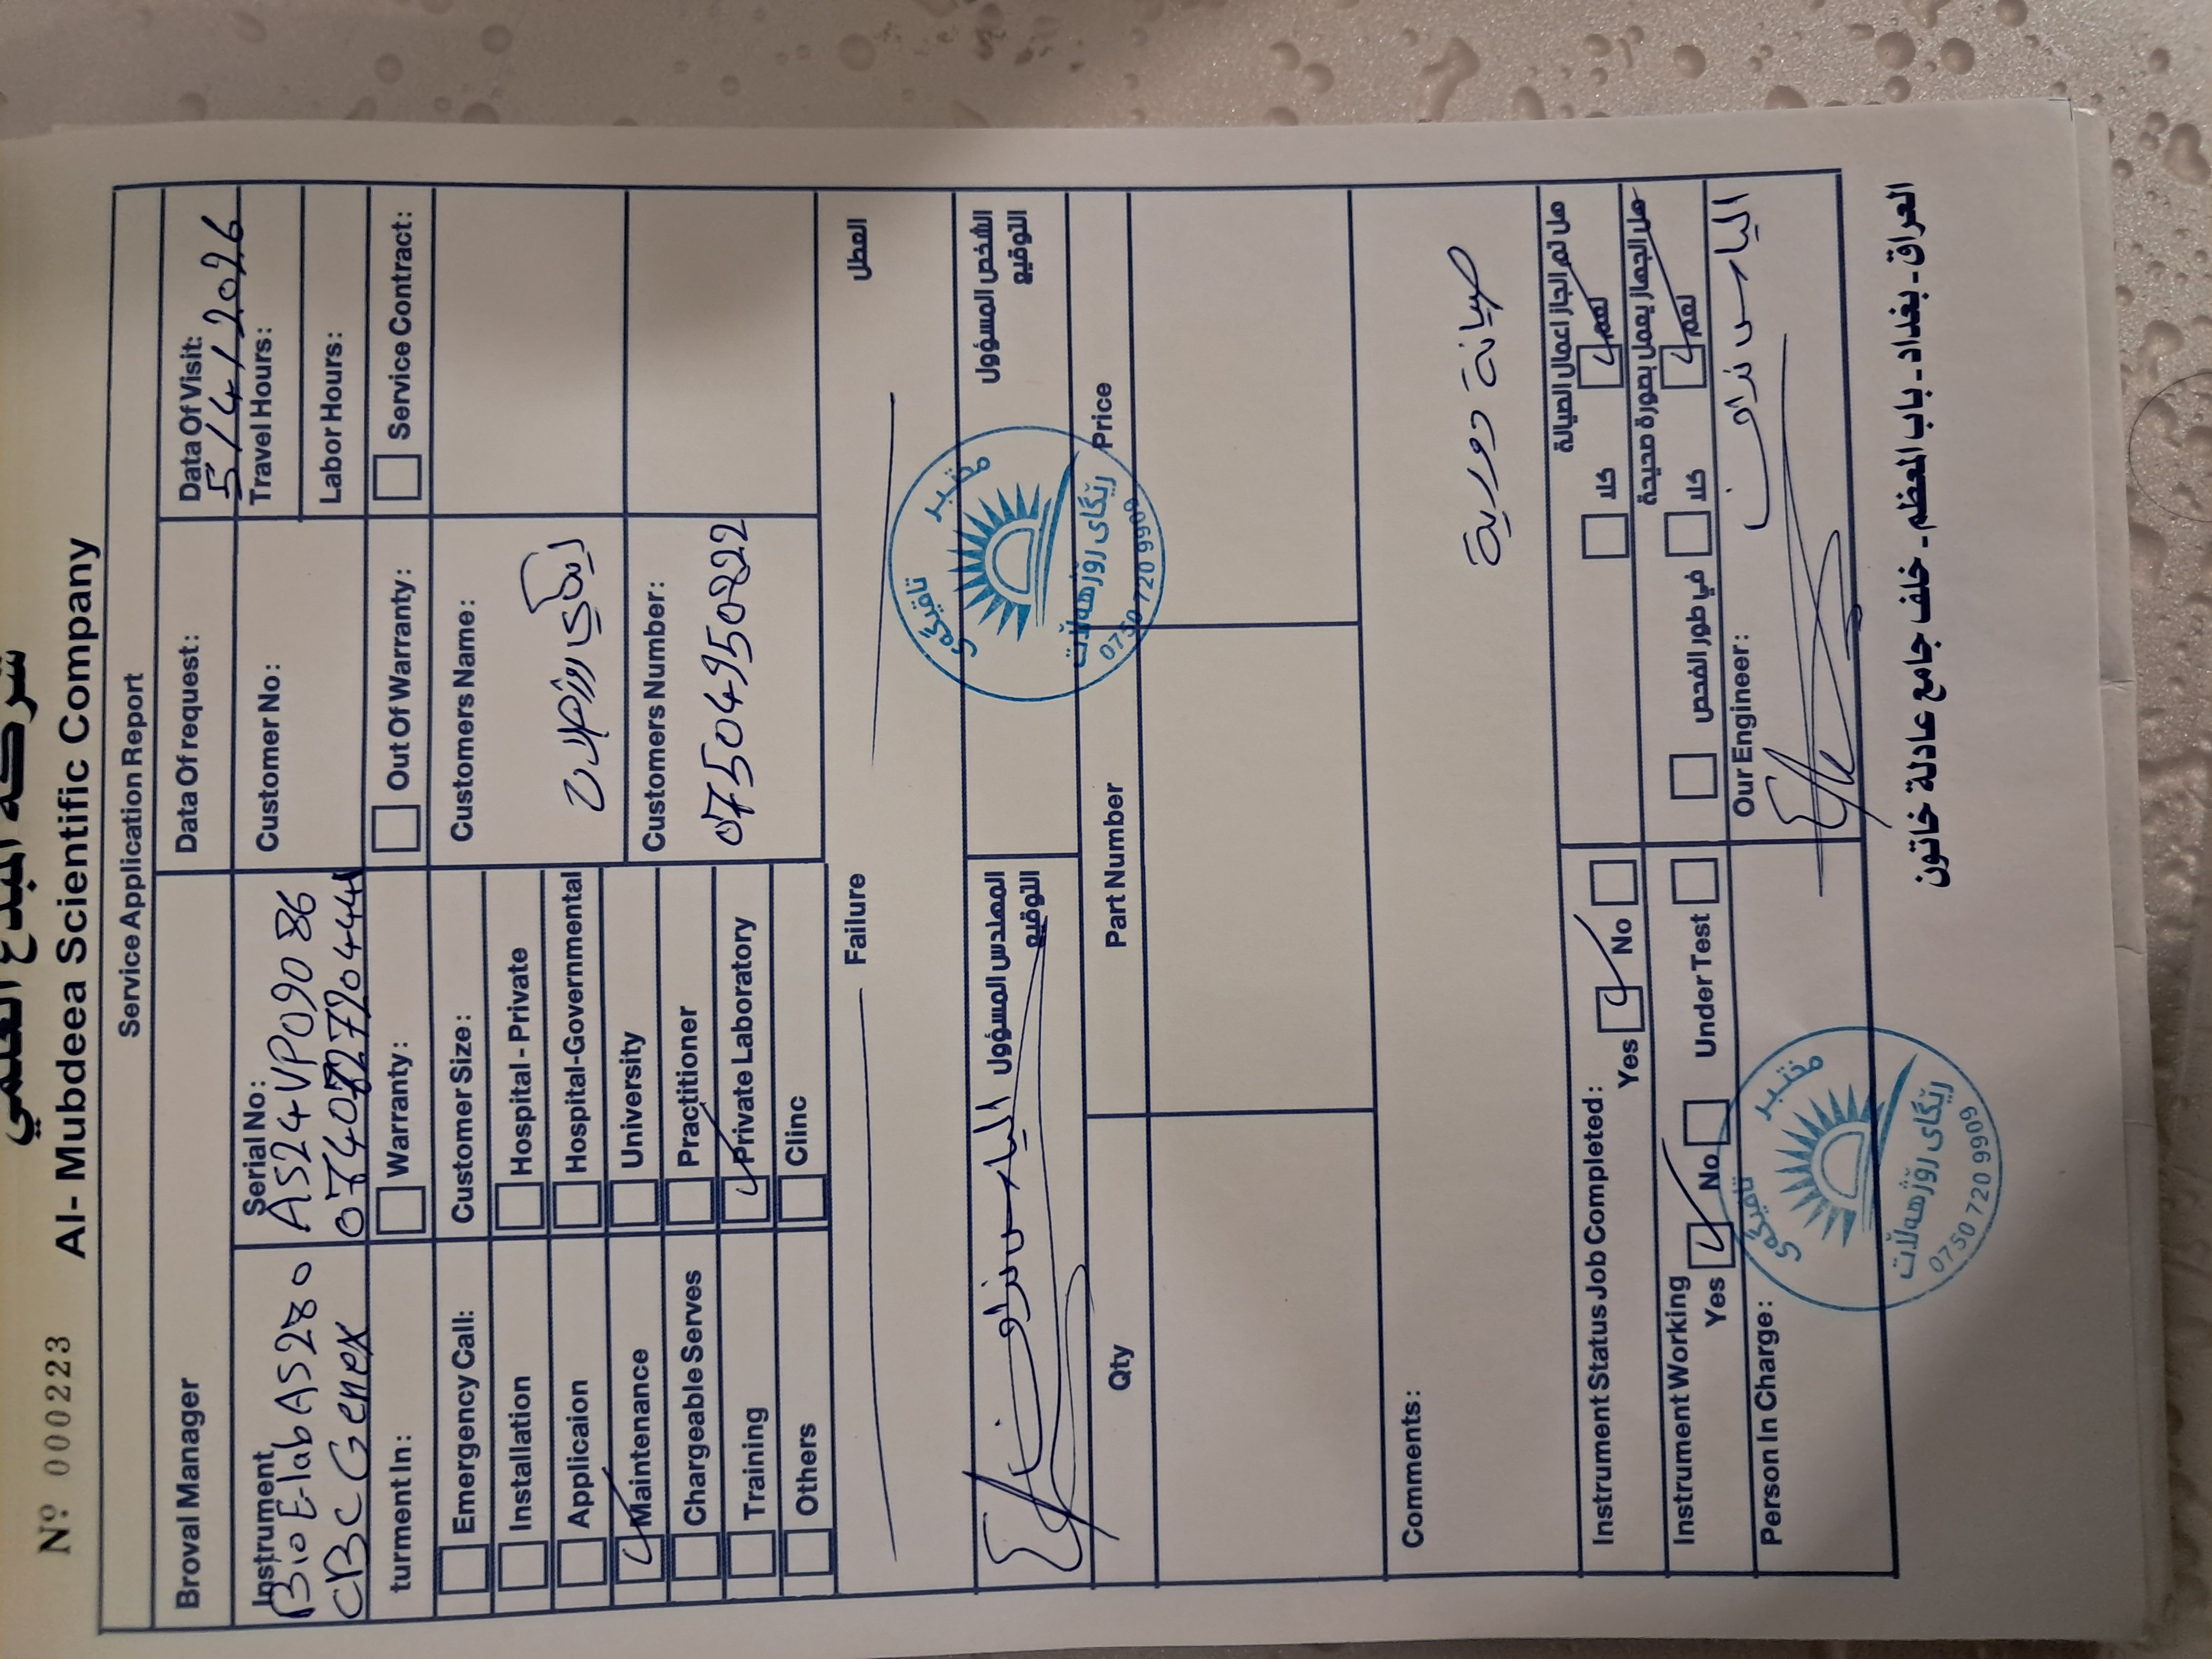 شركة المبدع العلمي
Nº 000223 Al- Mubdeea Scientific Company
Service Application Report
Broval Manager
Data Of request:
Data Of Visit:
5/4/2026
Instrument
BioElab AS280
CBC Genex
Serial No:
AS24VP09086
Customer No:
Travel Hours:
Labor Hours:
turment In:
Warranty:
Out Of Warranty:
Service Contract:
Emergency Call:
Installation
Applicaion
Maintenance
Chargeable Serves
Training
Others
Customer Size:
Hospital - Private
Hospital-Governmental
University
Practitioner
Private Laboratory
Clinc
Customers Name:
ريگای ڕۆژهەڵات
Customers Number:
07504950822
Failure
العطل
المهندس المسؤول
التوقيع
الشخص المسؤول
التوقيع
تاقیگەی
مختبر
ڕێگای ڕۆژهەڵات
0750 720 9909
Qty
Part Number
Price
Comments:
صيانة دورية
Instrument Status Job Completed:
Yes No
هل تم انجاز اعمال الصيانة
كلا نعم
Instrument Working
Yes No Under Test
هل الجهاز يعمل بصورة صحيحة
في طور الفحص كلا نعم
Person In Charge:
Our Engineer:
تاقیگەی
مختبر
ڕێگای ڕۆژهەڵات
0750 720 9909
العراق - بغداد - باب المعظم - خلف جامع عادلة خاتون